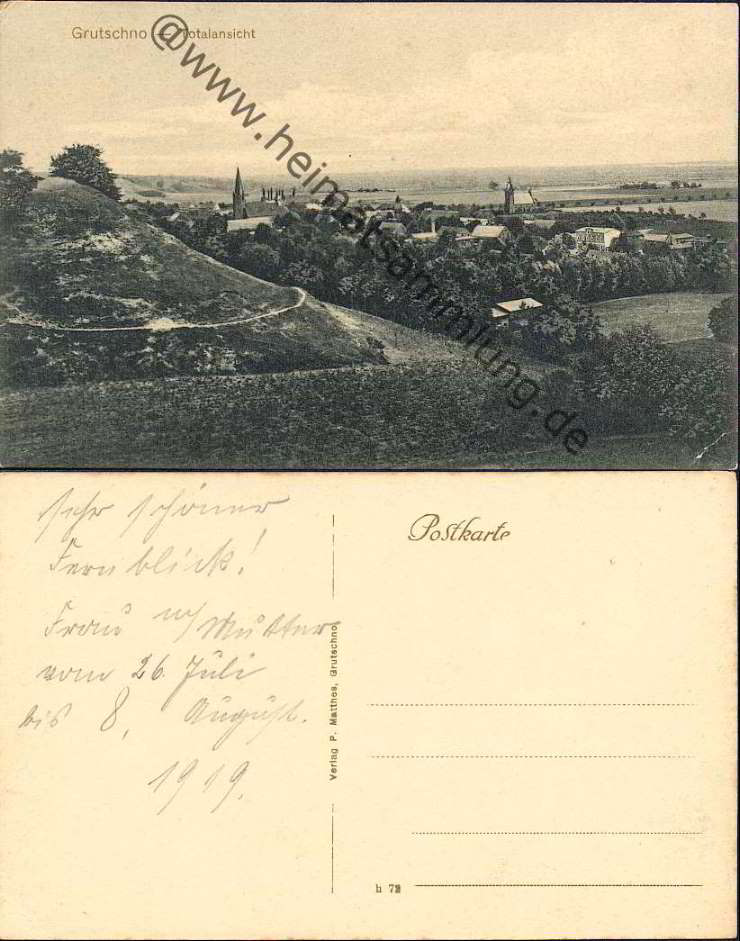 Grutschno — Totalansicht
@www.heimatsammlung.de
Sehr schöner
Fernblick!
Frau u/ Mutter
vom 26. Juli
bis 8. August.
1919.
Verlag P. Matthes, Grutschno
Postkarte
h 72